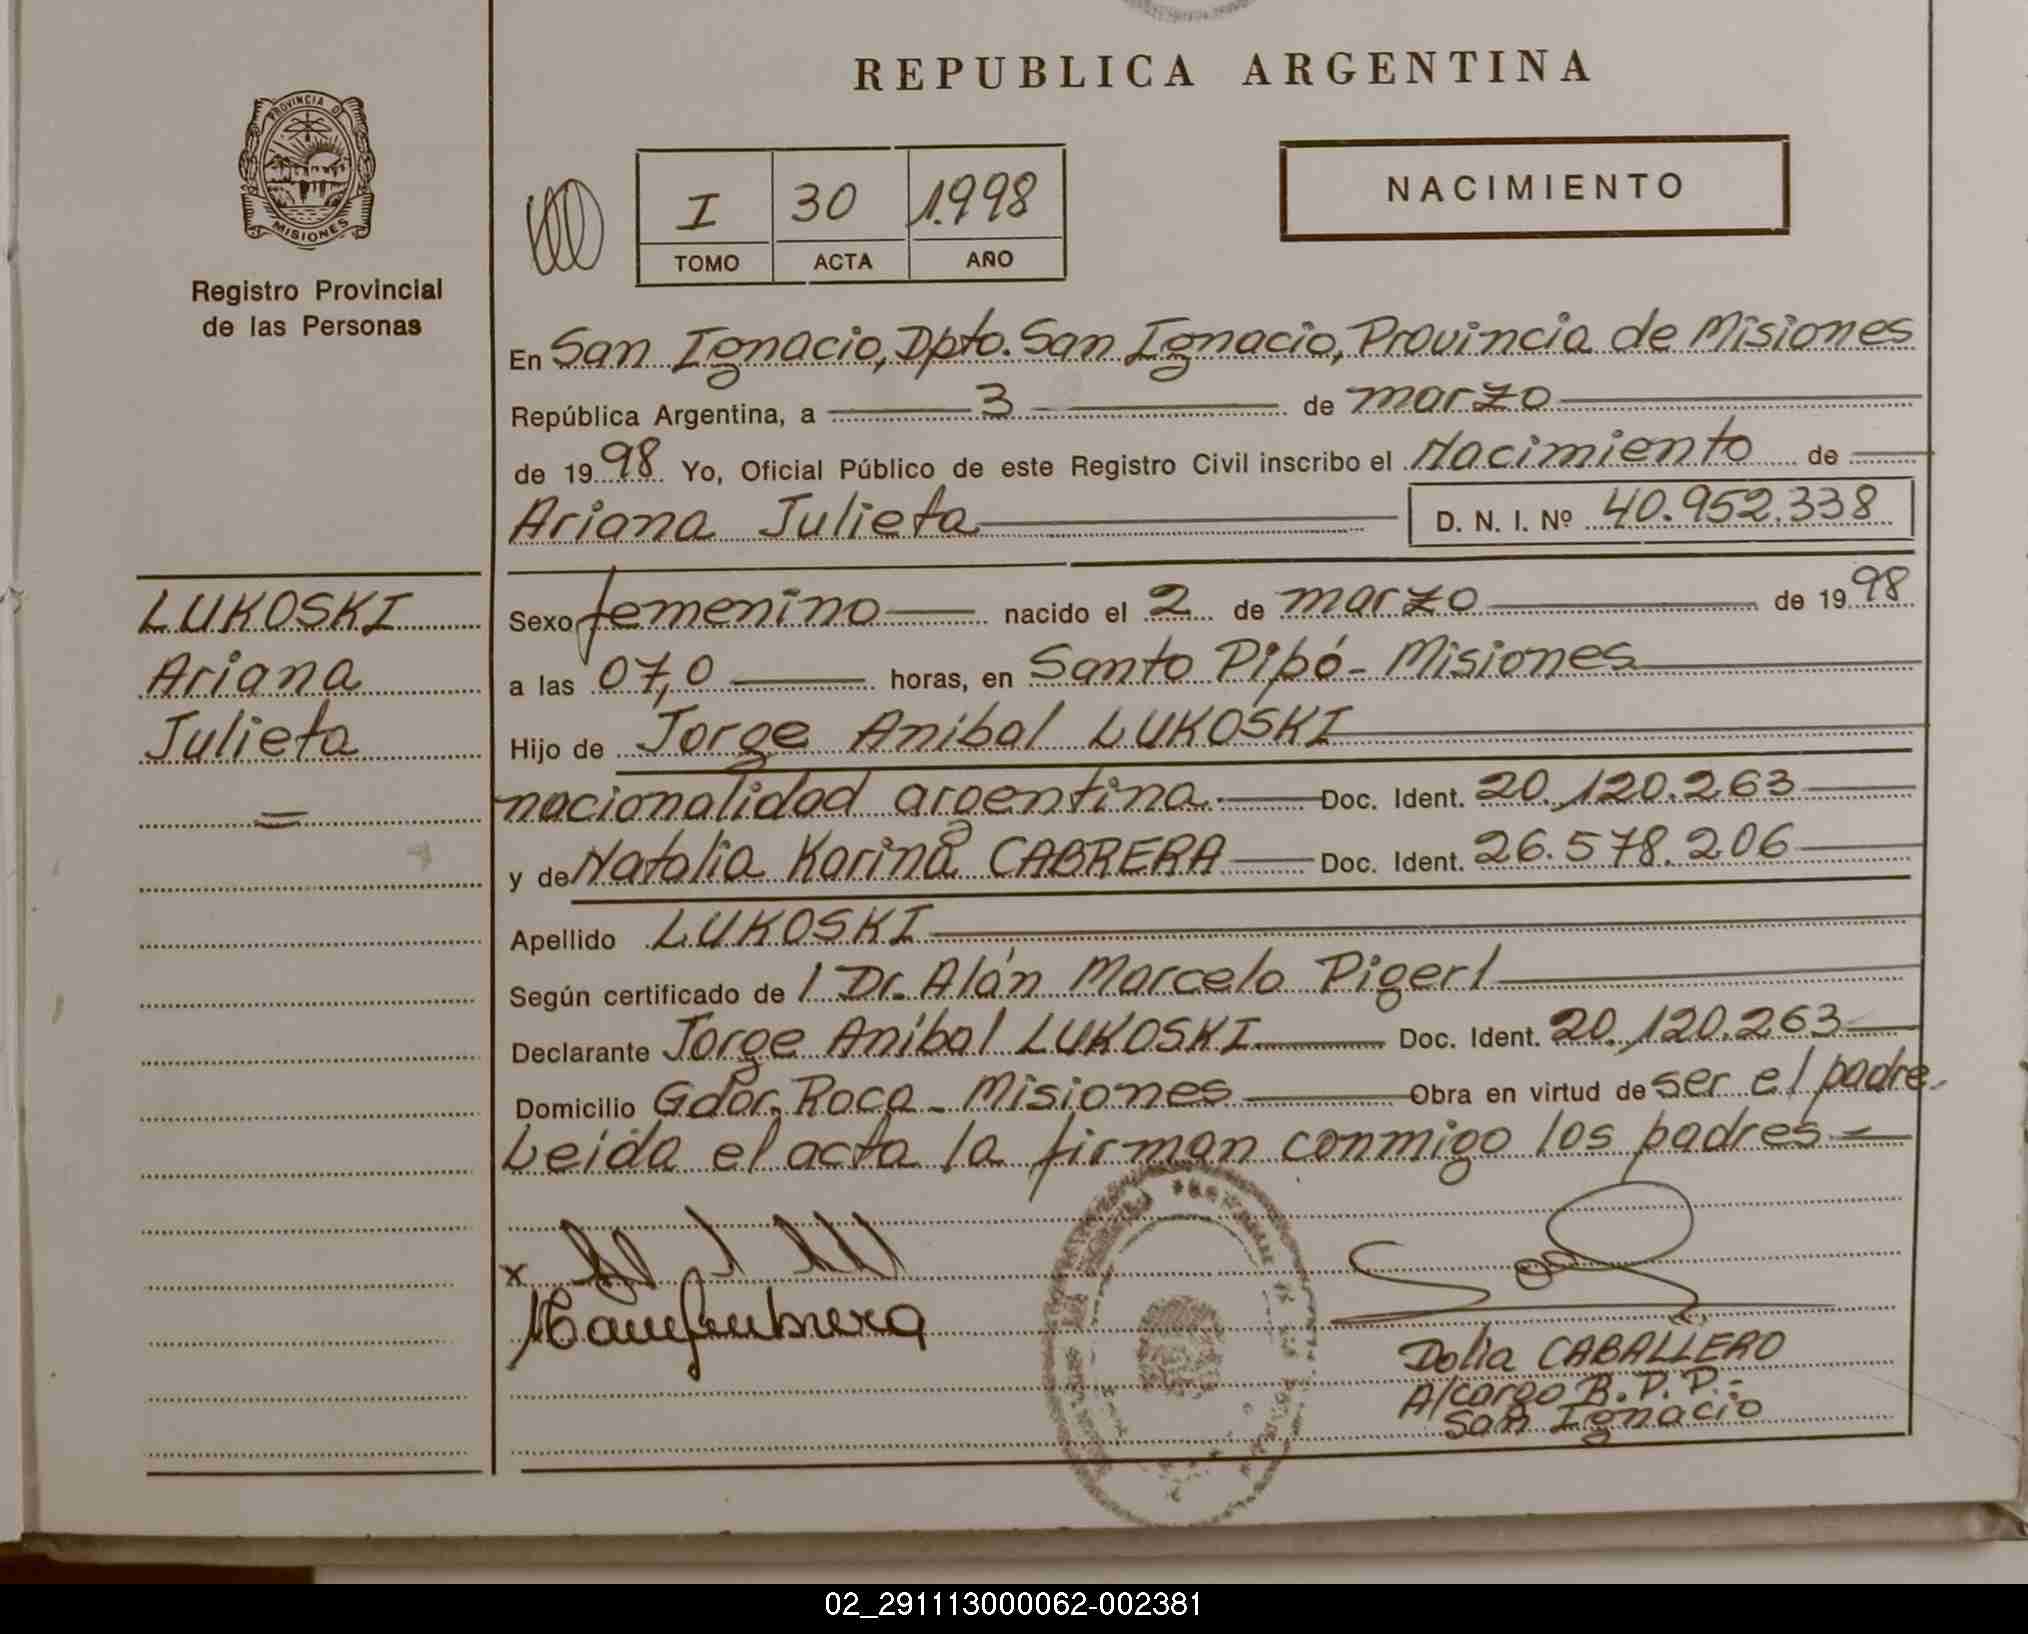 REPUBLICA ARGENTINA
PROVINCIA DE
MISIONES
Registro Provincial
de las Personas
I 30 1.998
TOMO ACTA AÑO
NACIMIENTO
En San Ignacio, Dpto. San Ignacio, Provincia de Misiones
República Argentina, a 3 de marzo
de 1998 Yo, Oficial Público de este Registro Civil inscribo el Nacimiento de
Ariana Julieta D. N. I. Nº 40.952.338
LUKOSKI
Ariana
Julieta
Sexo femenino nacido el 2 de marzo de 1998
a las 07,0 horas, en Santo Pipó - Misiones
Hijo de Jorge Anibal LUKOSKI
nacionalidad argentina. Doc. Ident. 20.120.263
y de Natalia Karina CABRERA Doc. Ident. 26.578.206
Apellido LUKOSKI
Según certificado de / Dr. Alán Marcelo Pigerl
Declarante Jorge Anibal LUKOSKI Doc. Ident. 20.120.263
Domicilio Gdor. Roca - Misiones Obra en virtud de ser el padre.
Leida el acta la firman conmigo los padres -
x
Dolia CABALLERO
A/cargo R.P.P.-
San Ignacio
02_291113000062-002381